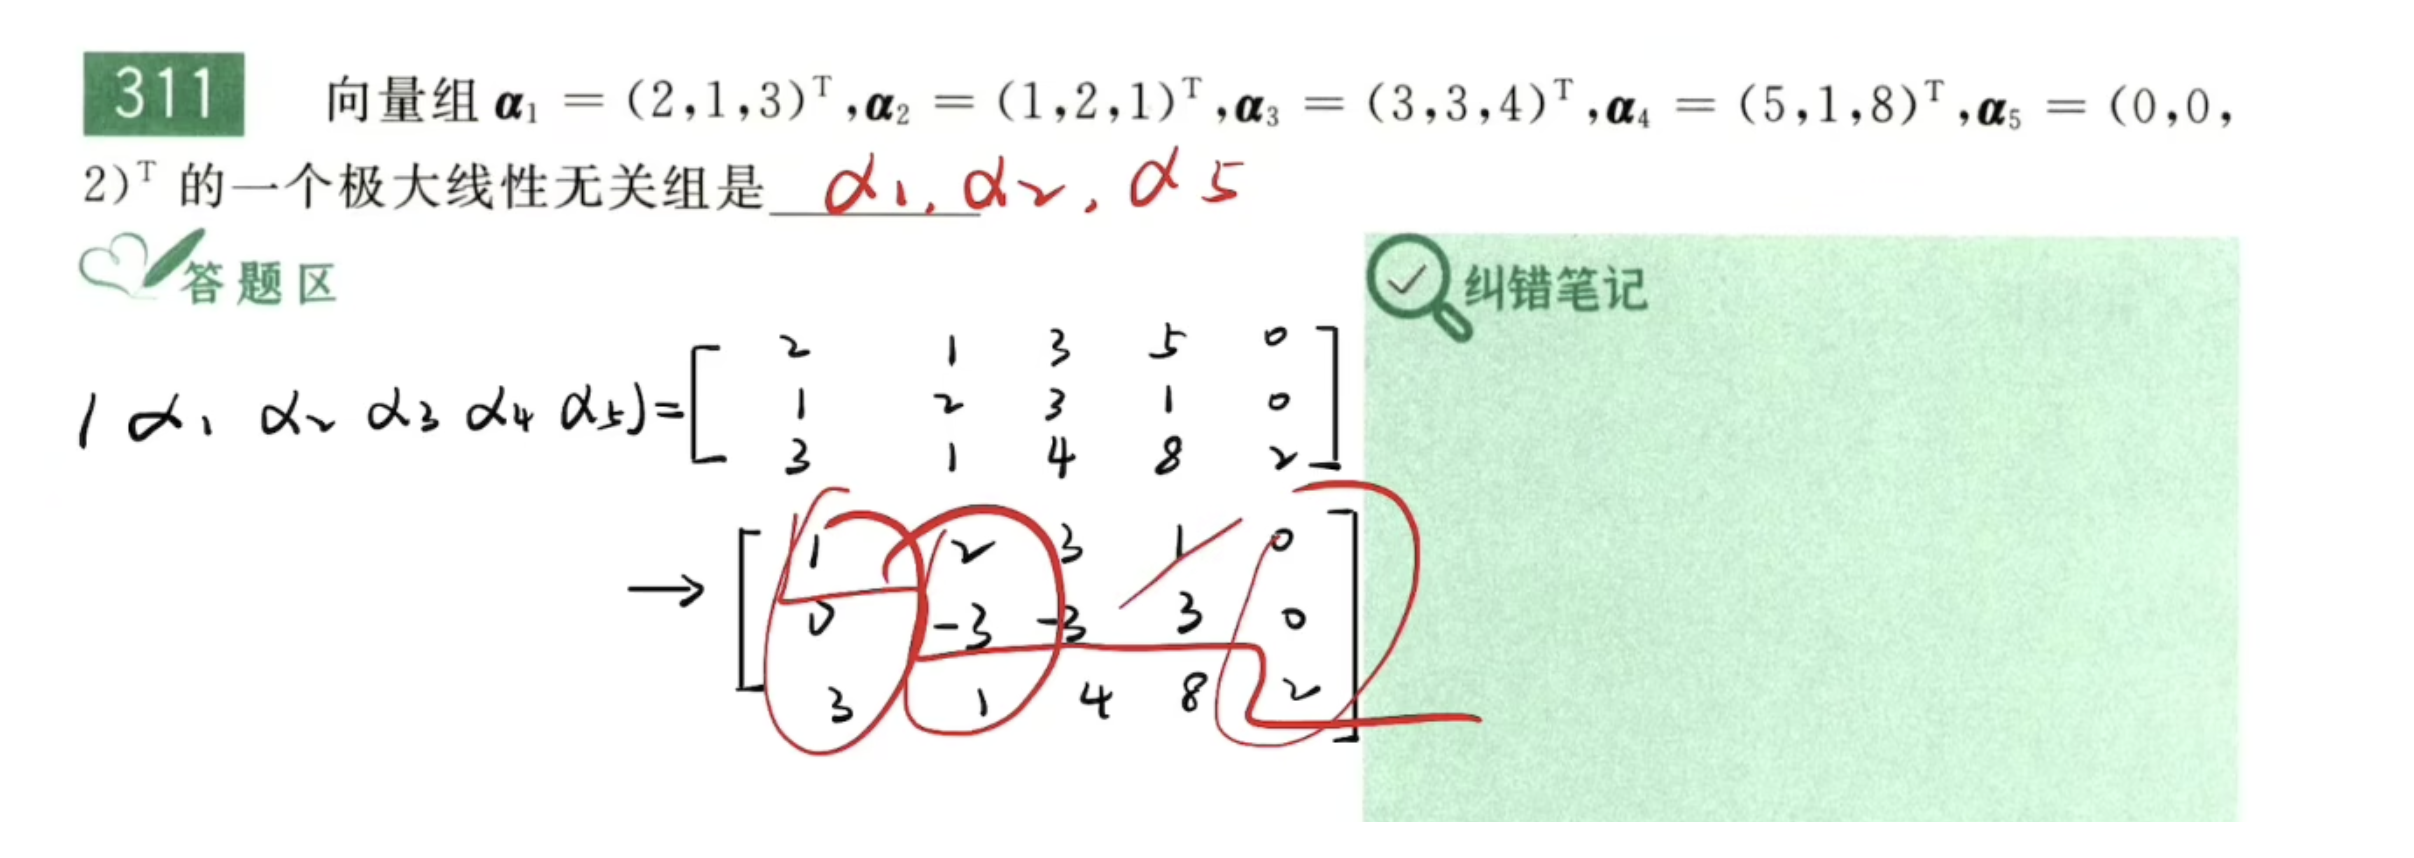 311 向量组 α₁ = (2,1,3)ᵀ,α₂ = (1,2,1)ᵀ,α₃ = (3,3,4)ᵀ,α₄ = (5,1,8)ᵀ,α₅ = (0,0,
2)ᵀ 的一个极大线性无关组是 α₁, α₂, α₅
答题区
纠错笔记
(α₁ α₂ α₃ α₄ α₅)=[
2 1 3 5 0
1 2 3 1 0
3 1 4 8 2 ]
→ [ 1 2 3 1 0
0 -3 -3 3 0
3 1 4 8 2 ]